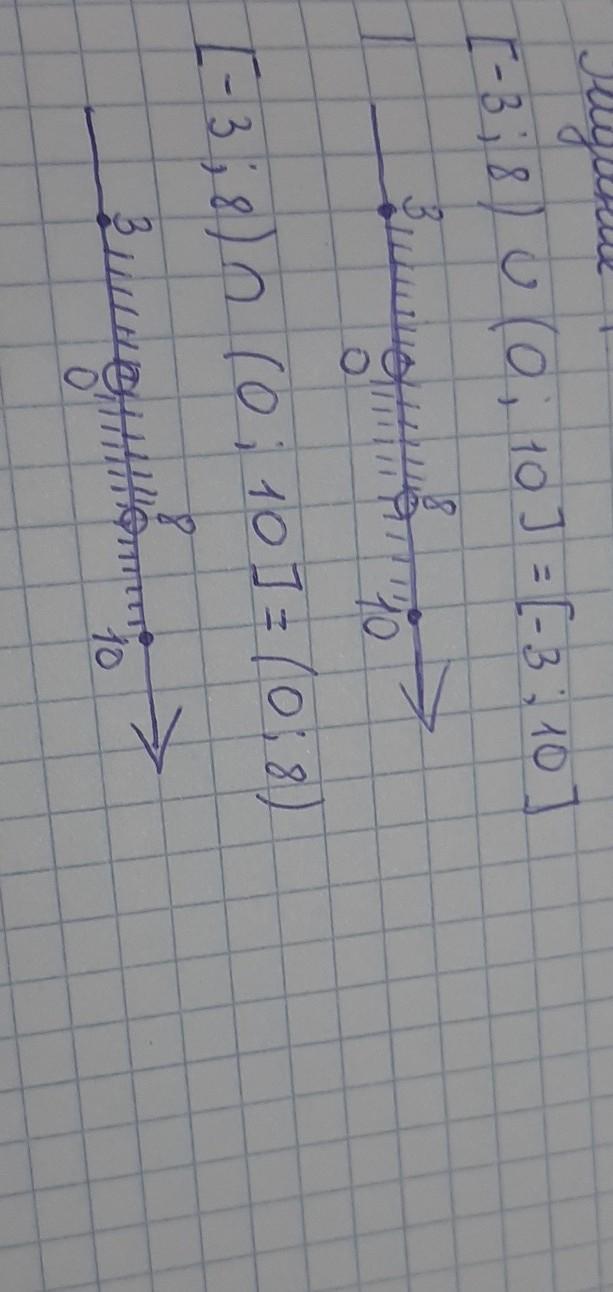 [-3; 8) ∪ (0; 10] = [-3; 10]
3 8
0 10
[-3; 8) ∩ (0; 10] = (0; 8)
3 8
0 10